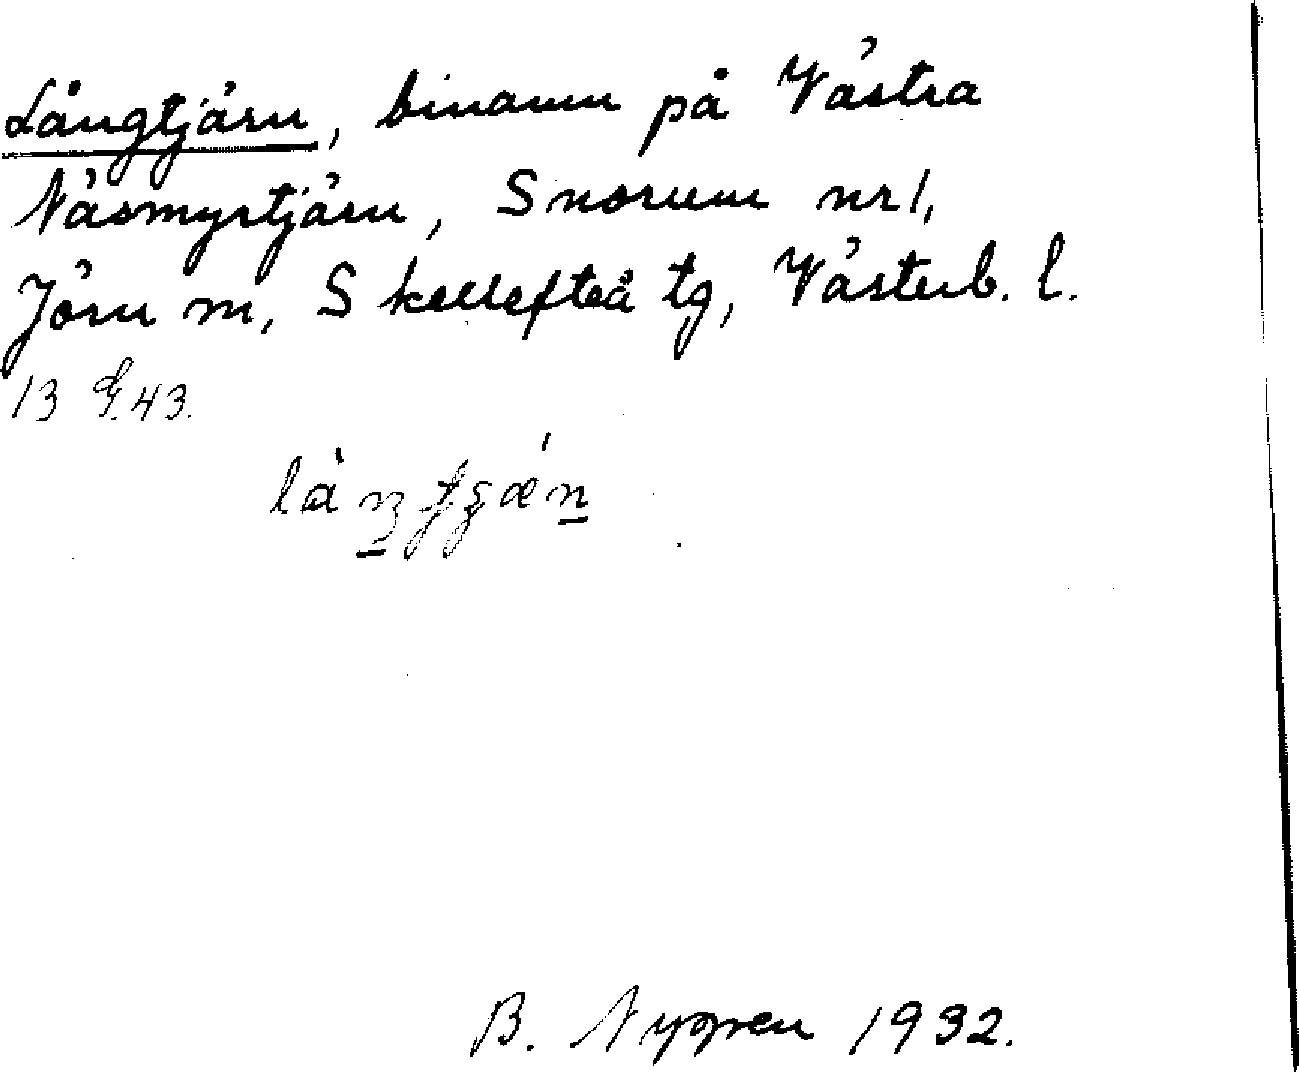 Långtjärn, binamn på Västra
Näsmyrtjärn, Snorum nr 1,
Jörn sn, Skellefteå tg, Västerb. l.
13 G. 43.
B. Nygren 1932.